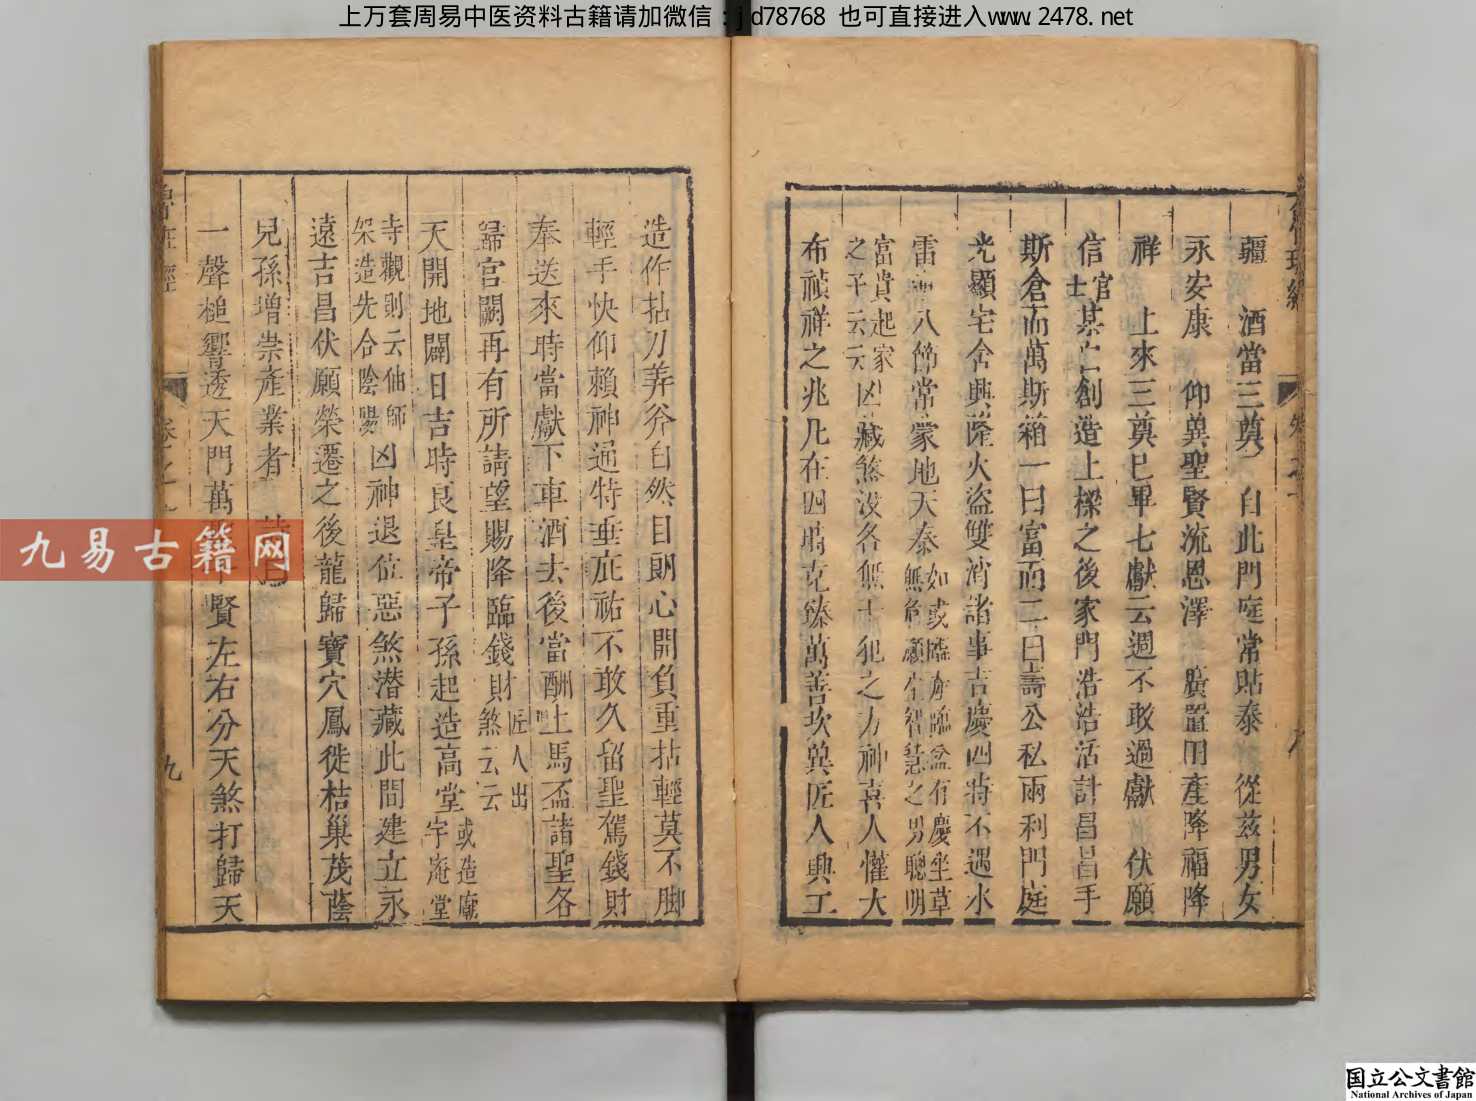 上万套周易中医资料古籍请加微信:jyd78768 也可直接进入www.2478.net
疆 酒當三奠 自此門庭常貼泰 從茲男女
永安康 仰冀聖賢流恩澤 廣置田產降福降
祥 上來三奠已畢七獻云週不敢過獻 伏願
信官士某 創造上樑之後家門浩浩活計昌昌手
斯倉而萬斯箱一曰富而二曰壽公私兩利門庭
光顯宅舍興隆火盜雙消諸事吉慶四時不遇水
雷 八節常蒙地天泰如或臨產臨盆有慶坐草無危願生智慧之男聰明
富貴起家之子云云凶藏煞沒各無干犯之方神喜人懽大
布禎祥之兆凡在四民克臻萬善次冀匠人興工
造作拈刀弄斧自然目朗心開負重拈輕莫不脚
輕手快仰賴神通特垂庇祐不敢久留聖駕錢財
奉送來時當獻下車酒去後當酬上馬盃諸聖各
歸宮闕再有所請望賜降臨錢財匠人出煞云云
天開地闢日吉時良皇帝子孫起造高堂或造廟宇庵堂
寺觀則云仙師架造先合陰陽凶神退位惡煞潜藏此間建立永
遠吉昌伏願榮遷之後龍歸寶穴鳳徙梧巢茂蔭
兒孫增崇產業者
一聲槌響透天門萬 賢左右分天煞打歸天
魯班經
卷之
九
九易古籍网
国立公文書館
National Archives of Japan